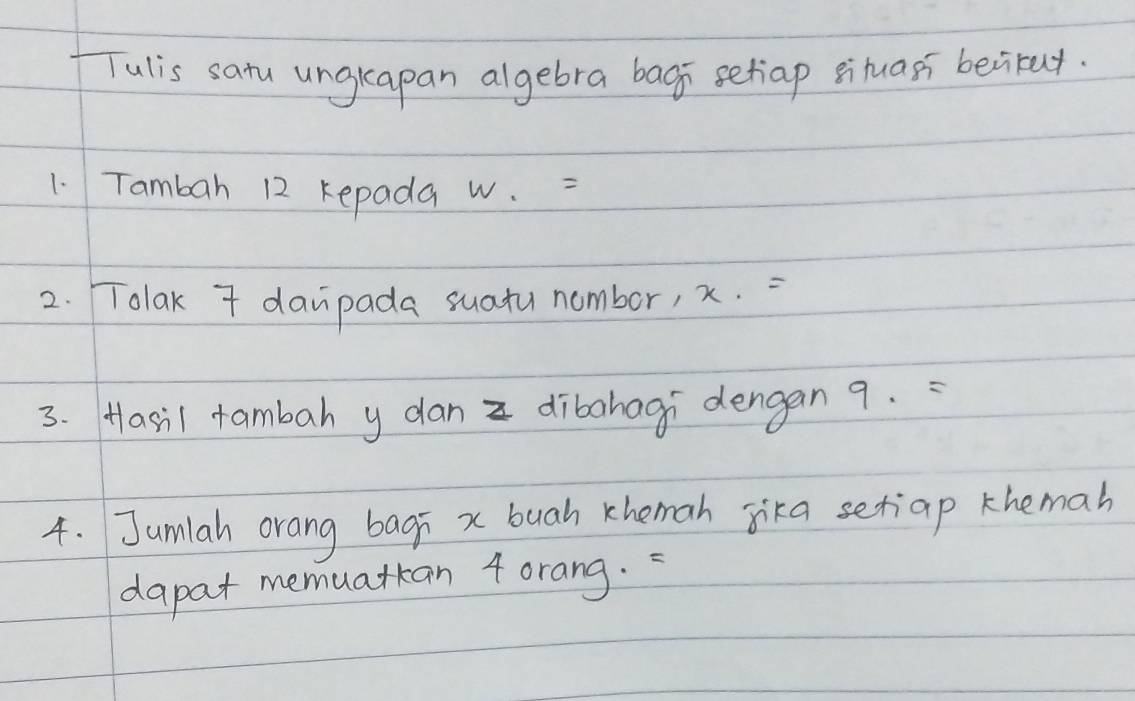 Tulis satu ungkapan algebra bagi setiap situasi berikut.
1. Tambah 12 kepada w. =
2. Tolak 7 daripada suatu nombor, x. =
3. Hasil tambah y dan z dibahagi dengan 9. =
4. Jumlah orang bagi x buah khemah jika setiap khemah
dapat memuatkan 4 orang. =